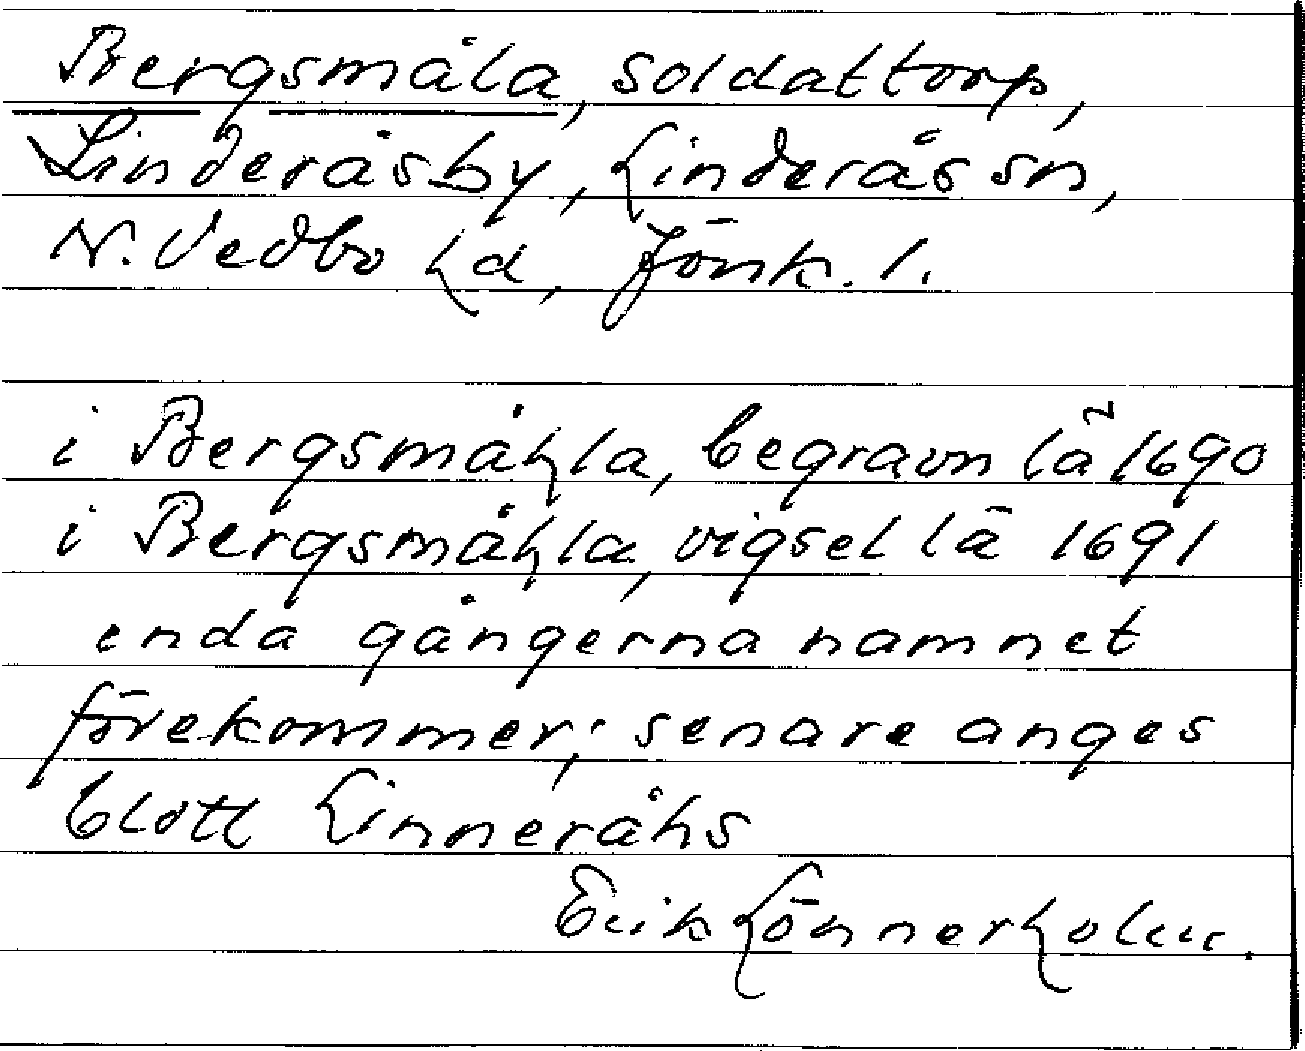 Bergsmåla, soldattorp,
Linderåsby, Linderås sn,
N. Vedbo hd, Jönk. l.
i Bergsmåhla, begravn lä 1690
i Bergsmåhla, vigsel lä 1691
enda gångerna namnet
förekommer; senare anges
blott Linneråhs
Erik Lönnerholm.